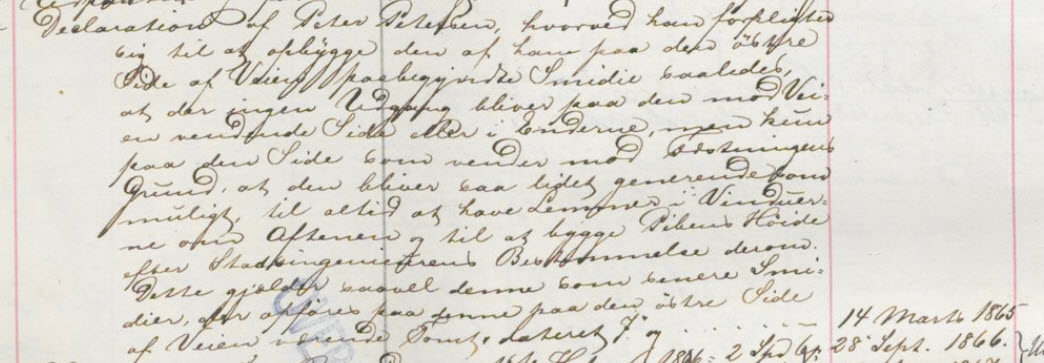 Declaration af Peter Petersen, hvorved han forpligter
sig til at opbygge den af ham paa den östre
Side af Veien paabegyndte Smidie saaledes,
at der ingen Udgang bliver paa den mod Vei-
en vendende Side eller i Enderne, men kun
paa den Side som vender mod Fæstningens
Grund, at den bliver saa lidet generende som
muligt, til altid at have Lemmer i Vinduer-
ne om Aftenen og til at bygge Pibens Höide
efter Stadsingenieurens Bestemmelse derom.
Dette gjælder saavel denne som senere Smi-
dier, der opföres paa samme paa den östre Side
af Veien værende Tomt, dateret 7de og
14 Marts 1865
28 Sept. 1866.
2 Spd